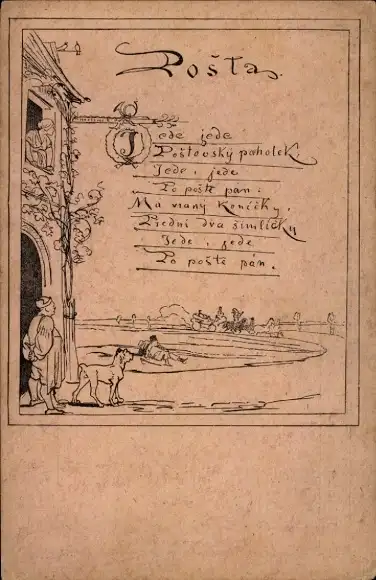 Pošta.
Jede jede
Poštovský paholek
Jede, jede
Po poště pan.
Má vraný koníčky
Přední dva šimlíčky
Jede, jede
Po poště pán.